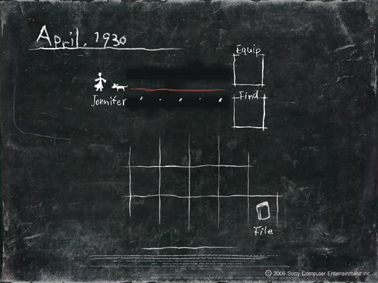 April, 1930
Equip
Jennifer
Find
File
© 2006 Sony Computer Entertainment Inc.